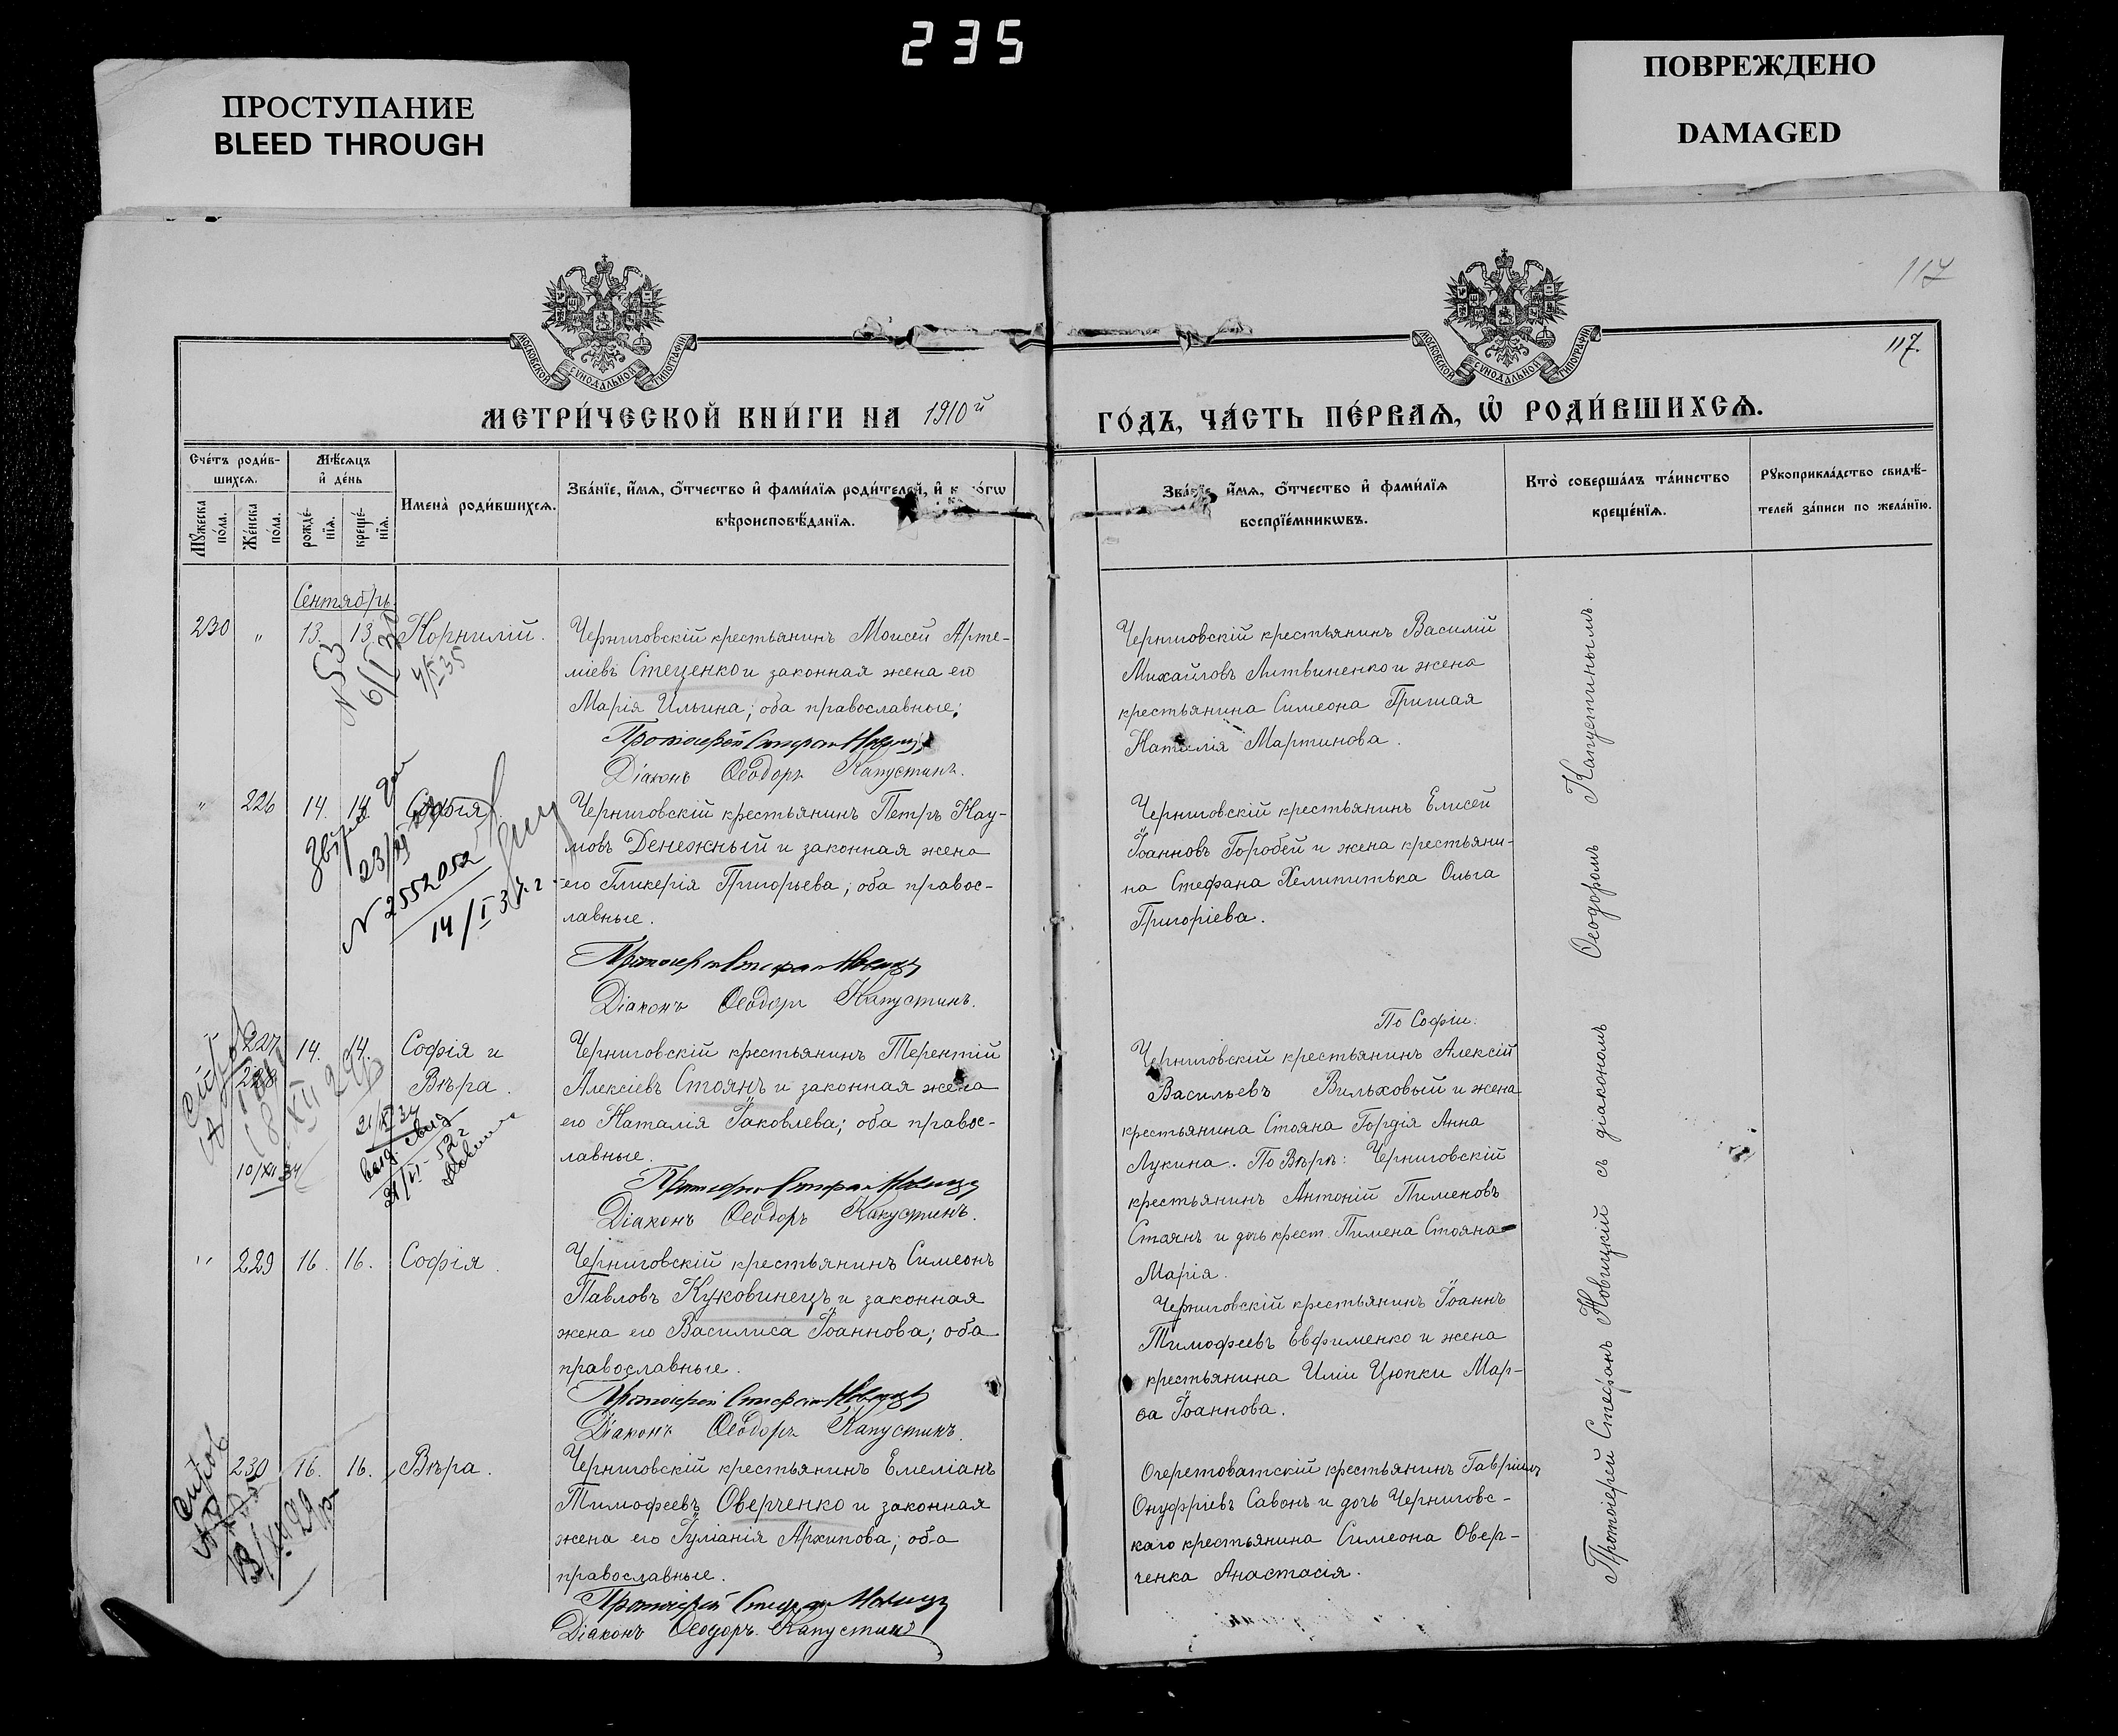 235
ПРОСТУПАНИЕ
BLEED THROUGH
ПОВРЕЖДЕНО
DAMAGED
117
117.
МОСКОВСКОЙ СУНОДАЛЬНОЙ ТИПОГРАФІИ
МОСКОВСКОЙ СУНОДАЛЬНОЙ ТИПОГРАФІИ
МЕТРИ́ЧЕСКОЙ КНИ́ГИ НА 1910й
ГО́ДЪ, ЧА́СТЬ ПЕ́РВАѦ, Ѡ҆ РОДИ́ВШИХСѦ.
Сче́тъ роди́в-
шихсѧ.
Мꙋ́жеска по́ла.
Же́нска по́ла.
Мѣ́сѧцъ
и҆ де́нь
рожде́-
нїѧ.
креще́-
нїѧ.
Имена̀ роди́вшихсѧ.
Зва́нїе, и҆́мѧ, ѻ҆́тчество и҆ фами́лїѧ роди́телей, и҆
вѣроисповѣ́данїѧ.
Зва́нїе, и҆́мѧ, ѻ҆́тчество и҆ фами́лїѧ
воспрїе́мникѡвъ.
Кто̀ соверша́лъ та́инство
креще́нїѧ.
Рꙋкоприкла́дство свидѣ́-
телей за́писи по жела́нїю.
Сентябрь
230 " 13. 13. Корнилій.
Черниговскій крестьянинъ Моисей Арте-
міевъ Стеценко и законная жена его
Марія Ильина; оба православные;
Протоіерей Стефан Новиц
Діаконъ Ѳеодоръ Капустинъ.
Черниговскій крестьянинъ Василій
Михайловъ Литвиненко и жена
крестьянина Симеона Гришая
Наталія Мартинова.
N 53
4/X 35
" 226 14. 14. Софія
Черниговскій крестьянинъ Петръ Нау-
мовъ Денежный и законная жена
его Гликерія Григорьева; оба правос-
лавные.
Протоіерей Стефан Новиц
Діаконъ Ѳеодоръ Капустинъ.
Черниговскій крестьянинъ Елисей
Іоанновъ Горобей и жена крестьяни-
на Стефана Хелипитька Ольга
Григоріева.
N 2552052
227 14. 14. Софія и
228 Вѣра.
Черниговскій крестьянинъ Терентій
Алексіевъ Стоянъ и законная жена
его Наталія Іаковлева; оба правос-
лавные.
Протоіерей Стефан Новиц
Діаконъ Ѳеодоръ Капустинъ.
По Софіи:
Черниговскій крестьянинъ Алексій
Васильевъ Вильховый и жена
крестьянина Стояна Гордія Анна
Лукина. По Вѣрѣ: Черниговскій
крестьянинъ Антоній Пименовъ
Стоянъ и дочь крест. Пимена Стояна
Марія.
10/XII 34
" 229 16. 16. Софія.
Черниговскій крестьянинъ Симеонъ
Павловъ Куковинецъ и законная
жена его Василиса Іоаннова; оба
православные.
Протоіерей Стефан Новиц
Діаконъ Ѳеодоръ Капустинъ.
Черниговскій крестьянинъ Іоаннъ
Тимофеевъ Евфименко и жена
крестьянина Иліи Цюпки Мар-
ѳа Іоаннова.
230 16. 16. Вѣра.
Черниговскій крестьянинъ Емеліанъ
Тимофеевъ Оверченко и законная
жена его Іуліанія Архипова; оба
православные.
Протоіерей Стефан Новиц
Діаконъ Ѳеодоръ Капустинъ
Очеретоватскій крестьянинъ Гавріилъ
Онуфріевъ Савонъ и дочь Черниговс-
каго крестьянина Симеона Овер-
ченка Анастасія.
Протоіерей Стефанъ Новицкій съ діакономъ Ѳеодоромъ Капустинымъ.